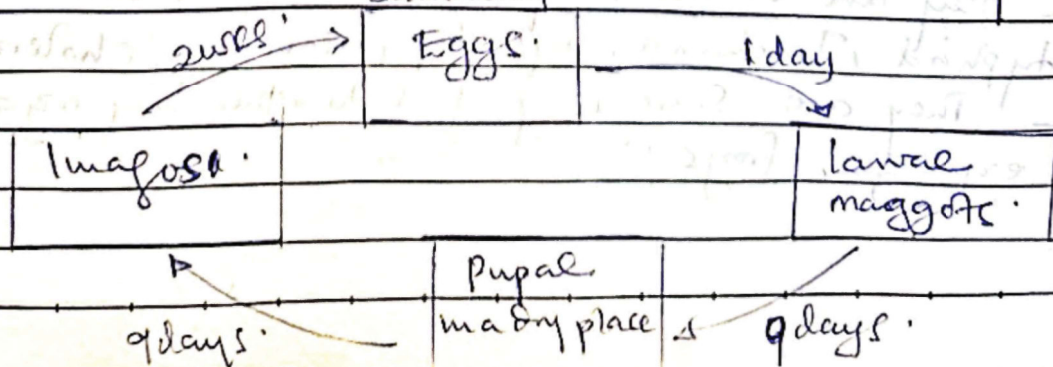 2wks.
Eggs.
1 day
Imagos
larvae
maggots.
Pupae
in a dry place
9days.
9days.